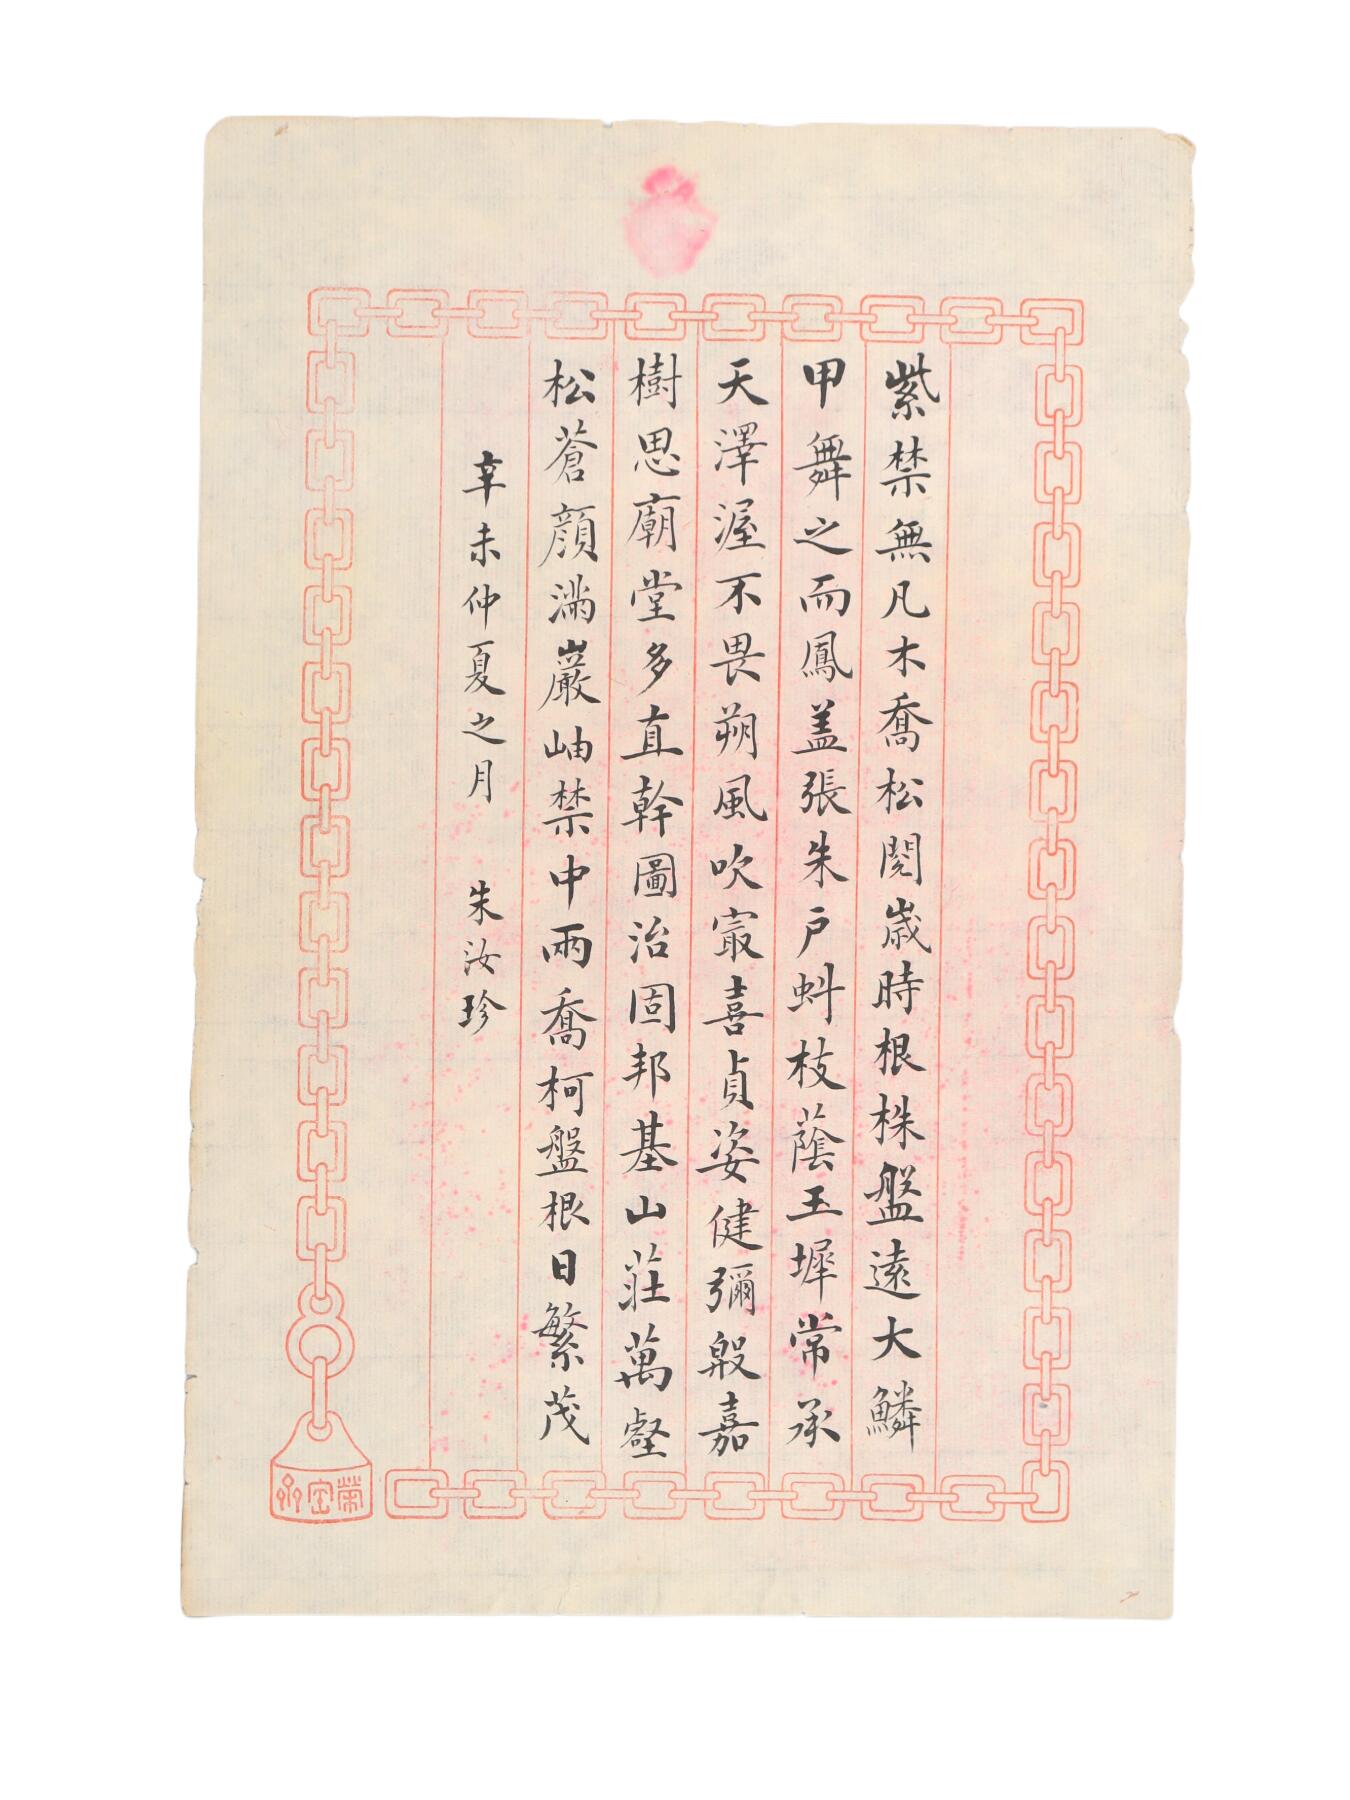 紫禁無凡木喬松閱歲時根株盤遠大鱗
甲舞之而鳳盖張朱戶虯枝蔭玉墀常承
天澤渥不畏朔風吹寂喜貞姿健彌殷嘉
樹思廟堂多直幹圖治固邦基山莊萬壑
松蒼顏滿巖岫禁中兩喬柯盤根日繁茂
辛未仲夏之月 朱汝珍
榮宝